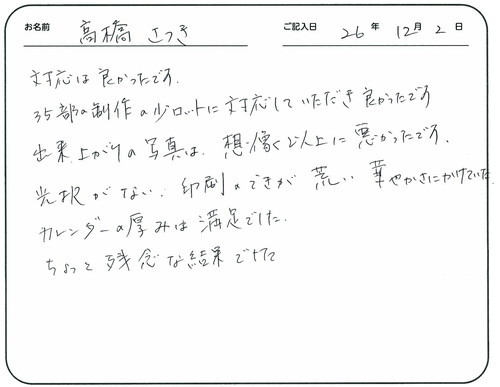 お名前 高橋 さつき ご記入日 26年 12月 2日
対応は良かったです。
35部の制作の少ロットに対応していただき良かったです
出来上がりの写真は、想像以上に悪かったです。
光沢がない、印刷のできが荒い 華やかさにかけていた
カレンダーの厚みは満足でした。
ちょっと残念な結果でした